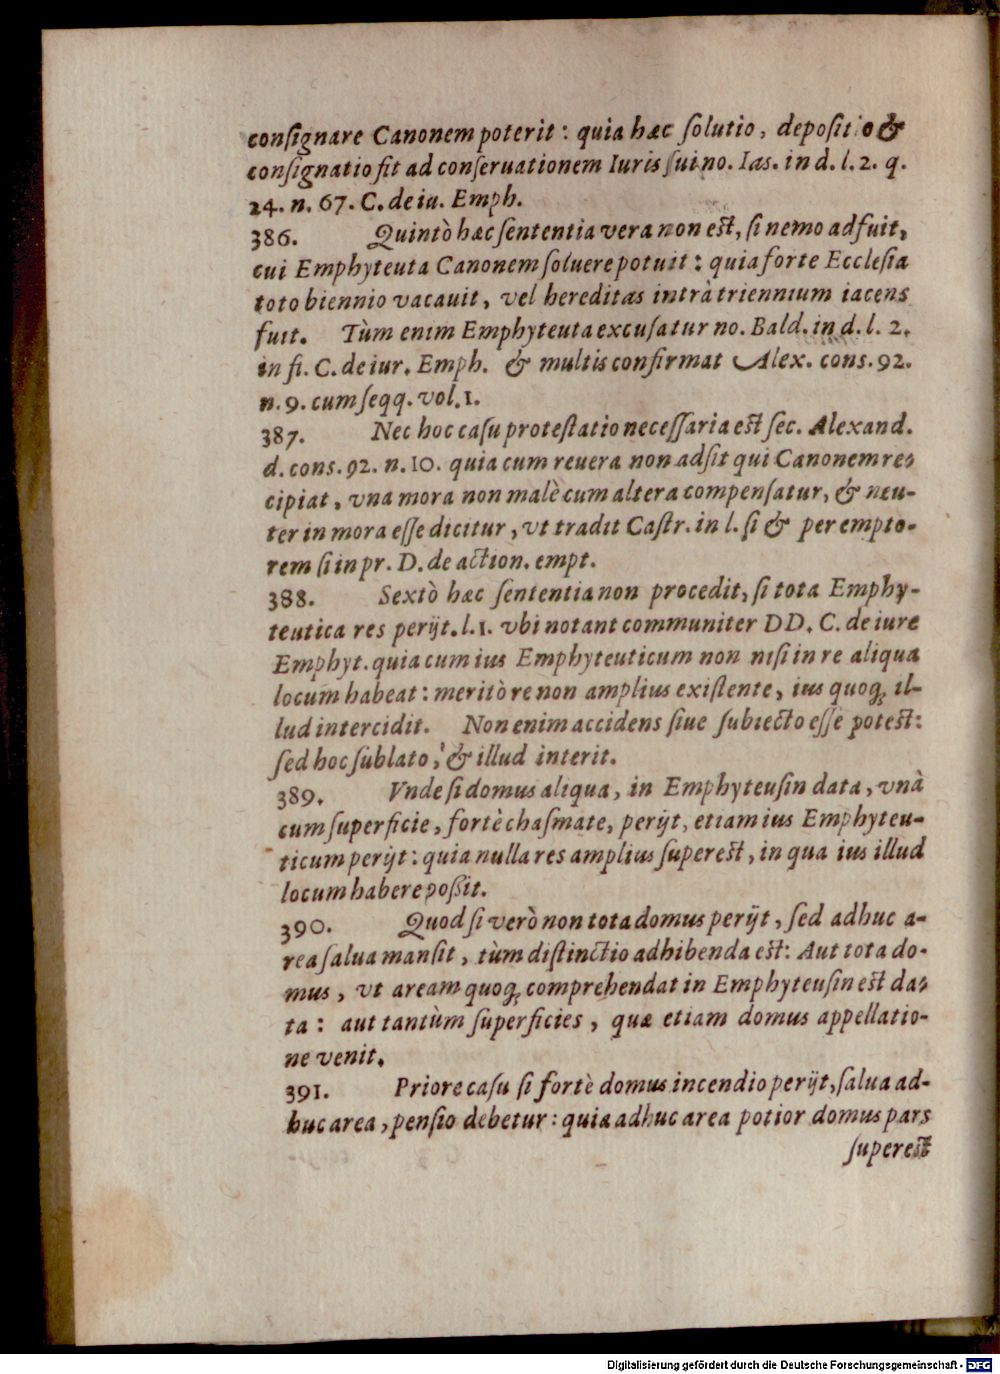 conſignare Canonem poterit: quia hæc ſolutio, depoſitio &
conſignatio fit ad conſeruationem Iuris ſui no. Ias. in d. l. 2. q.
24. n. 67. C. de iu. Emph.
386. Quintò hæc ſententia vera non est, ſi nemo adfuit,
cui Emphyteuta Canonem ſoluere potuit: quia forte Eccleſia
toto biennio vacauit, vel hereditas intrà triennium iacens
fuit. Tùm enim Emphyteuta excuſatur no. Bald. in d. l. 2.
in fi. C. de iur. Emph. & multis confirmat Alex. cons. 92.
n. 9. cum ſeqq. vol. 1.
387. Nec hoc caſu proteſtatio neceſſaria est ſec. Alexand.
d. cons. 92. n. 10. quia cum reuera non adſit qui Canonem re-
cipiat, vna mora non malè cum altera compenſatur, & neu-
ter in mora eſſe dicitur, vt tradit Caſtr. in l. ſi & per empto-
rem ſi in pr. D. de action. empt.
388. Sextò hæc ſententia non procedit, ſi tota Emphy-
teutica res perijt. l. 1. vbi notant communiter DD. C. de iure
Emphyt. quia cum ius Emphyteuticum non niſi in re aliqua
locum habeat: meritò re non amplius exiſtente, ius quoq; il-
lud intercidit. Non enim accidens ſiue ſubiecto eſſe potest:
ſed hoc ſublato, & illud interit.
389. Vnde ſi domus aliqua, in Emphyteuſin data, vnà
cum ſuperficie, fortè chaſmate, perijt, etiam ius Emphyteu-
ticum perijt: quia nulla res amplius ſuperest, in qua ius illud
locum habere poßit.
390. Quod ſi verò non tota domus perijt, ſed adhuc a-
rea ſalua manſit, tùm diſtinctio adhibenda est: Aut tota do-
mus, vt aream quoq; comprehendat in Emphyteuſin est da-
ta: aut tantùm ſuperficies, quæ etiam domus appellatio-
ne venit.
391. Priore caſu ſi fortè domus incendio perijt, ſalua ad-
huc area, penſio debetur: quia adhuc area potior domus pars
ſuperest
Digitalisierung gefördert durch die Deutsche Forschungsgemeinschaft - DFG